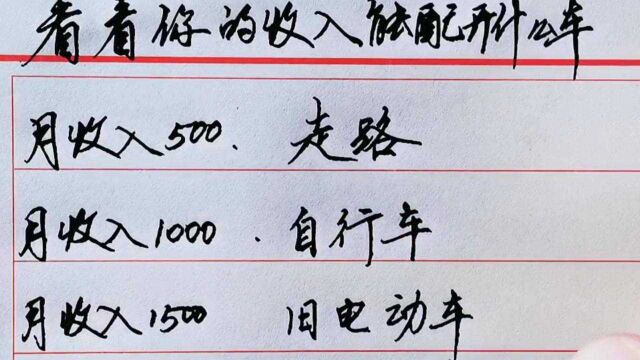 看看你的收入能配开什么车
月收入500. 走路
月收入1000. 自行车
月收入1500 旧电动车